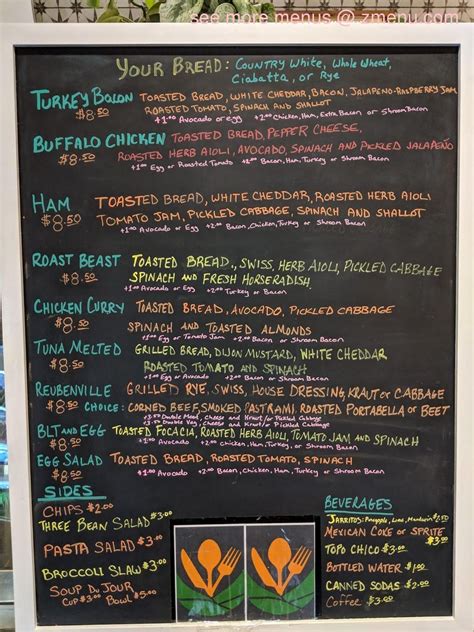 see more menus @ zmenu.com
YOUR BREAD: COUNTRY WHITE, WHOLE WHEAT,
CIABATTA, OR RYE
TURKEY BACON TOASTED BREAD, WHITE CHEDDAR, BACON, JALAPENO-RASPBERRY JAM
$8.50 ROASTED TOMATO, SPINACH AND SHALLOT
+1.00 Avocado or egg +2.00 Chicken, Ham, Extra Bacon or Shroom Bacon
BUFFALO CHICKEN TOASTED BREAD, PEPPER CHEESE,
$8.50 ROASTED HERB AIOLI, AVOCADO, SPINACH AND PICKLED JALAPEÑO
+1.00 Egg or Roasted Tomato Bacon, Ham, Turkey or Shroom Bacon
HAM TOASTED BREAD, WHITE CHEDDAR, ROASTED HERB AIOLI
$8.50 TOMATO JAM, PICKLED CABBAGE, SPINACH AND SHALLOT
+1.00 Avocado or Egg +2.00 Bacon, Chicken, Turkey or Shroom Bacon
ROAST BEAST TOASTED BREAD., SWISS, HERB AIOLI, PICKLED CABBAGE
$8.50 SPINACH AND FRESH HORSERADISH.
+1.00 Avocado or Egg +2.00 Turkey or Bacon
CHICKEN CURRY TOASTED BREAD, AVOCADO, PICKLED CABBAGE
$8.50 SPINACH AND TOASTED ALMONDS
+1.00 Egg or Tomato Jam +2.00 Bacon or Shroom Bacon
TUNA MELTED GRILLED BREAD, DIJON MUSTARD, WHITE CHEDDAR
$8.50 ROASTED TOMATO AND SPINACH
+1.00 Egg or Avocado +2.00 Bacon or Shroom Bacon
REUBENVILLE GRILLED RYE, SWISS, HOUSE DRESSING, KRAUT OR CABBAGE
$8.50 CHOICE: CORNED BEEF, SMOKED PASTRAMI, ROASTED PORTABELLA OR BEET
+3.50 Double Meat, Cheese and Kraut or Pickled Cabbage
Double Veg, Cheese and Kraut or Pickled Cabbage
BLT AND EGG TOASTED FOCACIA, ROASTED HERB AIOLI, TOMATO JAM AND SPINACH
$8.50 +1.00 Avocado +2.00 Chicken, Ham, Turkey or Shroom Bacon
EGG SALAD TOASTED BREAD, ROASTED TOMATO, SPINACH
$8.50 +1.00 Avocado +2.00 Bacon, Chicken, Ham, Turkey or Shroom Bacon
SIDES
CHIPS $2.00
THREE BEAN SALAD $3.00
PASTA SALAD $3.00
BROCCOLI SLAW $3.00
SOUP DU JOUR
CUP $3.00 BOWL $5.00
BEVERAGES
JARRITOS: Pineapple, Lime, Mandarin $2.50
MEXICAN COKE OR SPRITE $3.00
TOPO CHICO $3.00
BOTTLED WATER $1.00
CANNED SODAS $2.00
Coffee $3.00